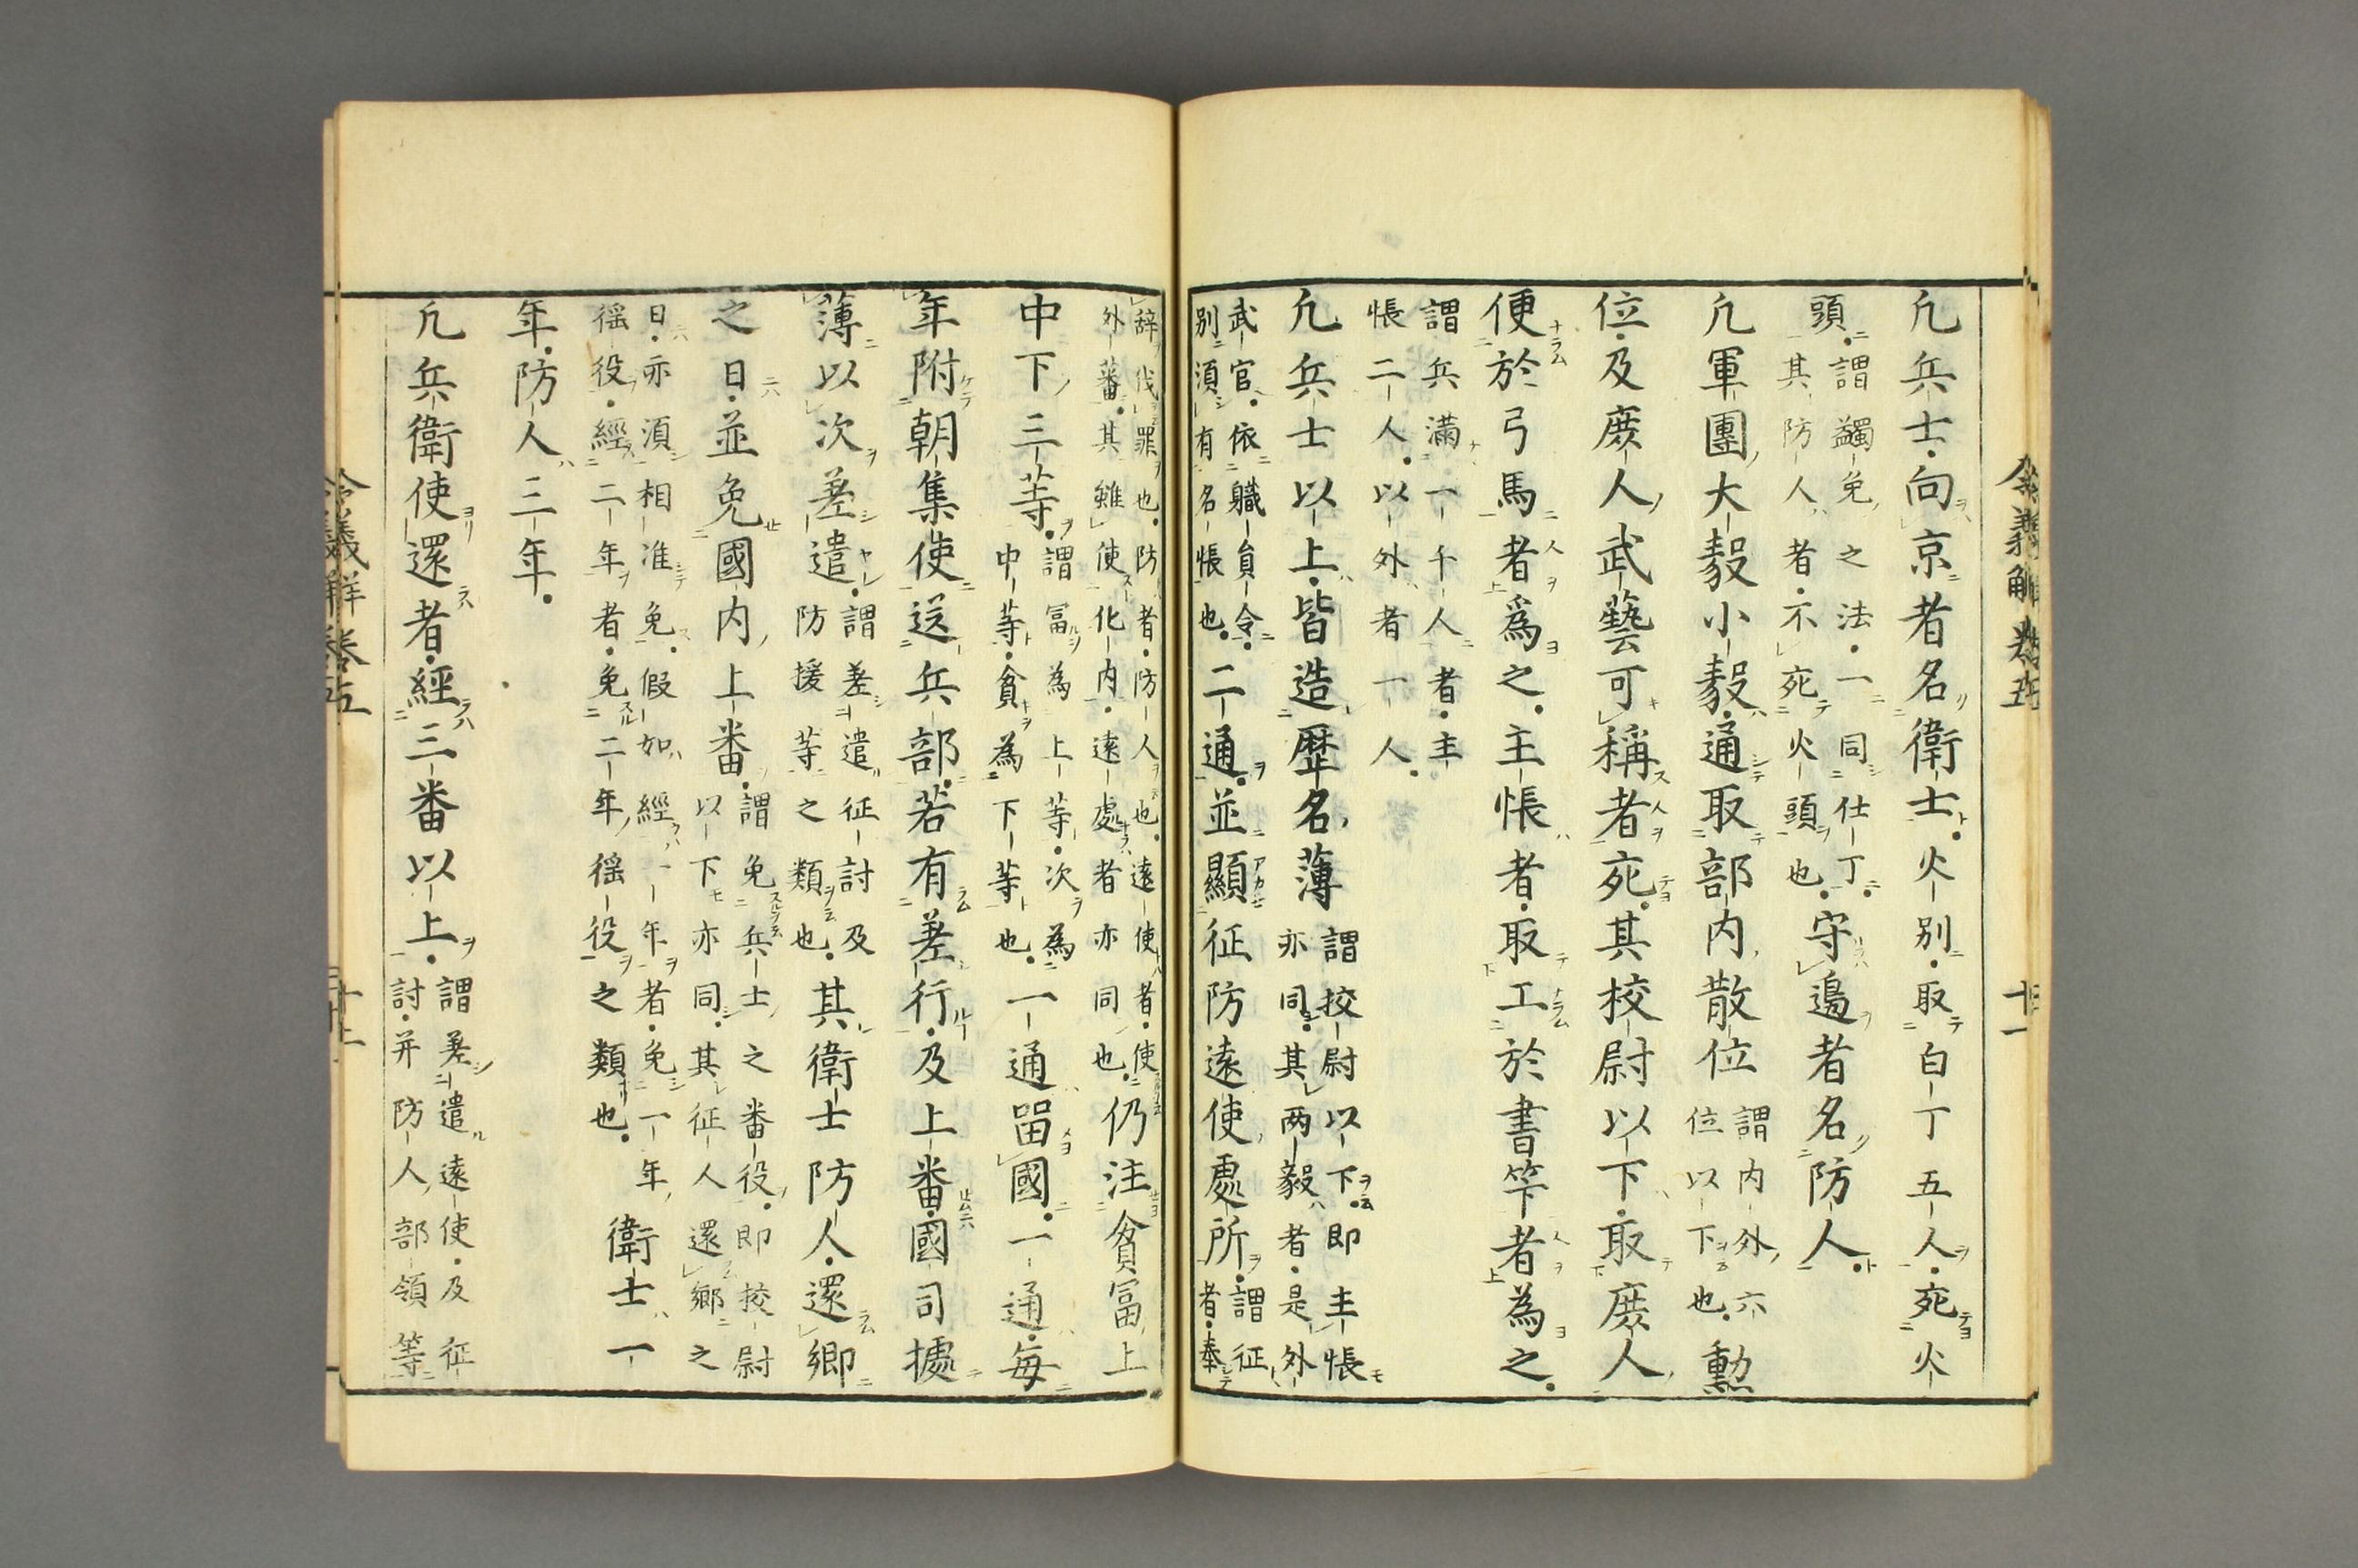 凢兵士向京者名衛士火別取白丁五人死火
頭謂蠲免之法一同仕丁其防人者不死火頭也守邉者名防人
凢軍團大毅小毅通取部内散位謂内外六位以下也勲
位及庻人武藝可稱者死其校尉以下取庻人
便於弓馬者爲之主悵者取工於書竿者為之
謂兵滿一千人者主悵二人以外者一人
凢兵士以上皆造歴名薄謂挍尉以下即主悵亦同其两毅者是外
武官依軄負令別湏有名悵也二通並顯征防遠使處所謂征者奉
辞伐罪也防者防人也遠使者使外蕃其雖使化内遠處者亦同也仍注貧冨上
中下三等謂冨為上等次為中等貧為下等也一通畱國一通毎
年附朝集使送兵部若有差行及上番國司據
薄以次差遣謂差遣征討及防援等之類也其衛士防人還郷
之日並免國内上番謂免兵士之番役即挍尉以下亦同其征人還郷之
日亦湏相准免假如經一年者免一年徭役經二年者免二年徭役之類也衛士一
年防人三年
凢兵衛使還者經三番以上謂差遣遠使及征討并防人部領等
令義解卷五
十一